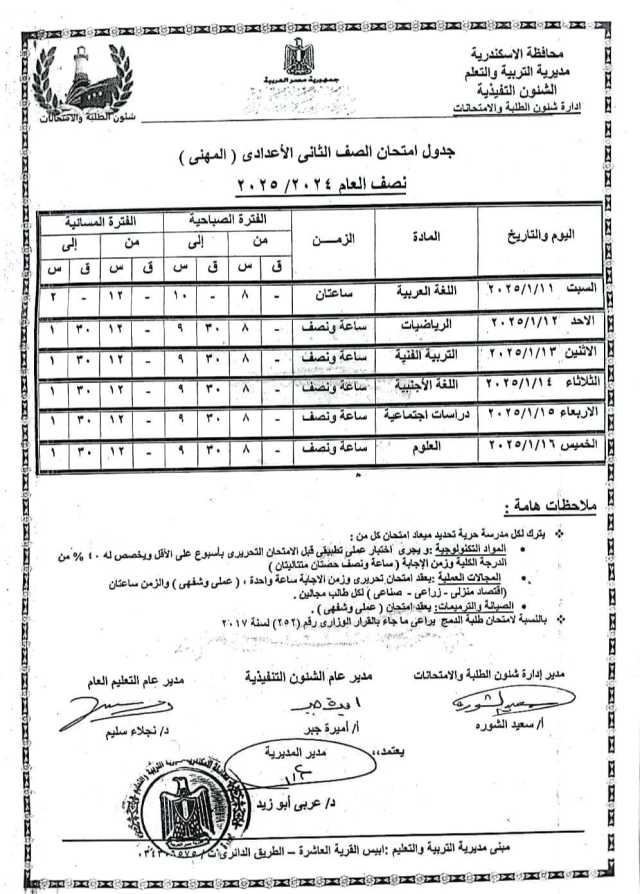 محافظة الاسكندرية
مديرية التربية والتعلم
الشئون التنفيذية
إدارة شئون الطلبة والامتحانات
جمهورية مصر العربية
شئون الطلبة والامتحانات
جدول امتحان الصف الثانى الأعدادى ( المهنى )
نصف العام ٢٠٢٤/ ٢٠٢٥
اليوم والتاريخ المادة الزمــن الفترة الصباحية الفترة المسائية
من إلى من إلى
ق س ق س ق س ق س
السبت ٢٠٢٥/١/١١ اللغة العربية ساعتان - ٨ - ١٠ - ١٢ - ٢
الاحد ٢٠٢٥/١/١٢ الرياضيات ساعة ونصف - ٨ ٣٠ ٩ - ١٢ ٣٠ ١
الاثنين ٢٠٢٥/١/١٣ التربية الفنية ساعة ونصف - ٨ ٣٠ ٩ - ١٢ ٣٠ ١
الثلاثاء ٢٠٢٥/١/١٤ اللغة الأجنبية ساعة ونصف - ٨ ٣٠ ٩ - ١٢ ٣٠ ١
الاربعاء ٢٠٢٥/١/١٥ دراسات اجتماعية ساعة ونصف - ٨ ٣٠ ٩ - ١٢ ٣٠ ١
الخميس ٢٠٢٥/١/١٦ العلوم ساعة ونصف - ٨ ٣٠ ٩ - ١٢ ٣٠ ١
ملاحظات هامة :
يترك لكل مدرسة حرية تحديد ميعاد امتحان كل من :
المواد التكنولوجية :و يجرى اختبار عملى تطبيقى قبل الامتحان التحريرى بأسبوع على الأقل ويخصص له ٤٠ % من
الدرجة الكلية وزمن الإجابة ( ساعة ونصف حصتان متتاليتان )
المجالات العملية: يعقد امتحان تحريرى وزمن الاجابة ساعة واحدة ، ( عملى وشفهى ) والزمن ساعتان
(اقتصاد منزلى - زراعى - صناعى ) لكل طالب مجالين .
الصيانة والترميمات: يعقد امتحان ( عملى وشفهى ) .
بالنسبة لامتحان طلبة الدمج يراعى ما جاء بالقرار الوزارى رقم (٢٥٢) لسنة ٢٠١٧
مدير إدارة شئون الطلبة والامتحانات مدير عام الشئون التنفيذية مدير عام التعليم العام
أ/ سعيد الشوره أ/ أميرة جبر د/ نجلاء سليم
يعتمد،،
مدير المديرية
د/ عربى أبو زيد
مبنى مديرية التربية والتعليم :ابيس القرية العاشرة – الطريق الدائرى